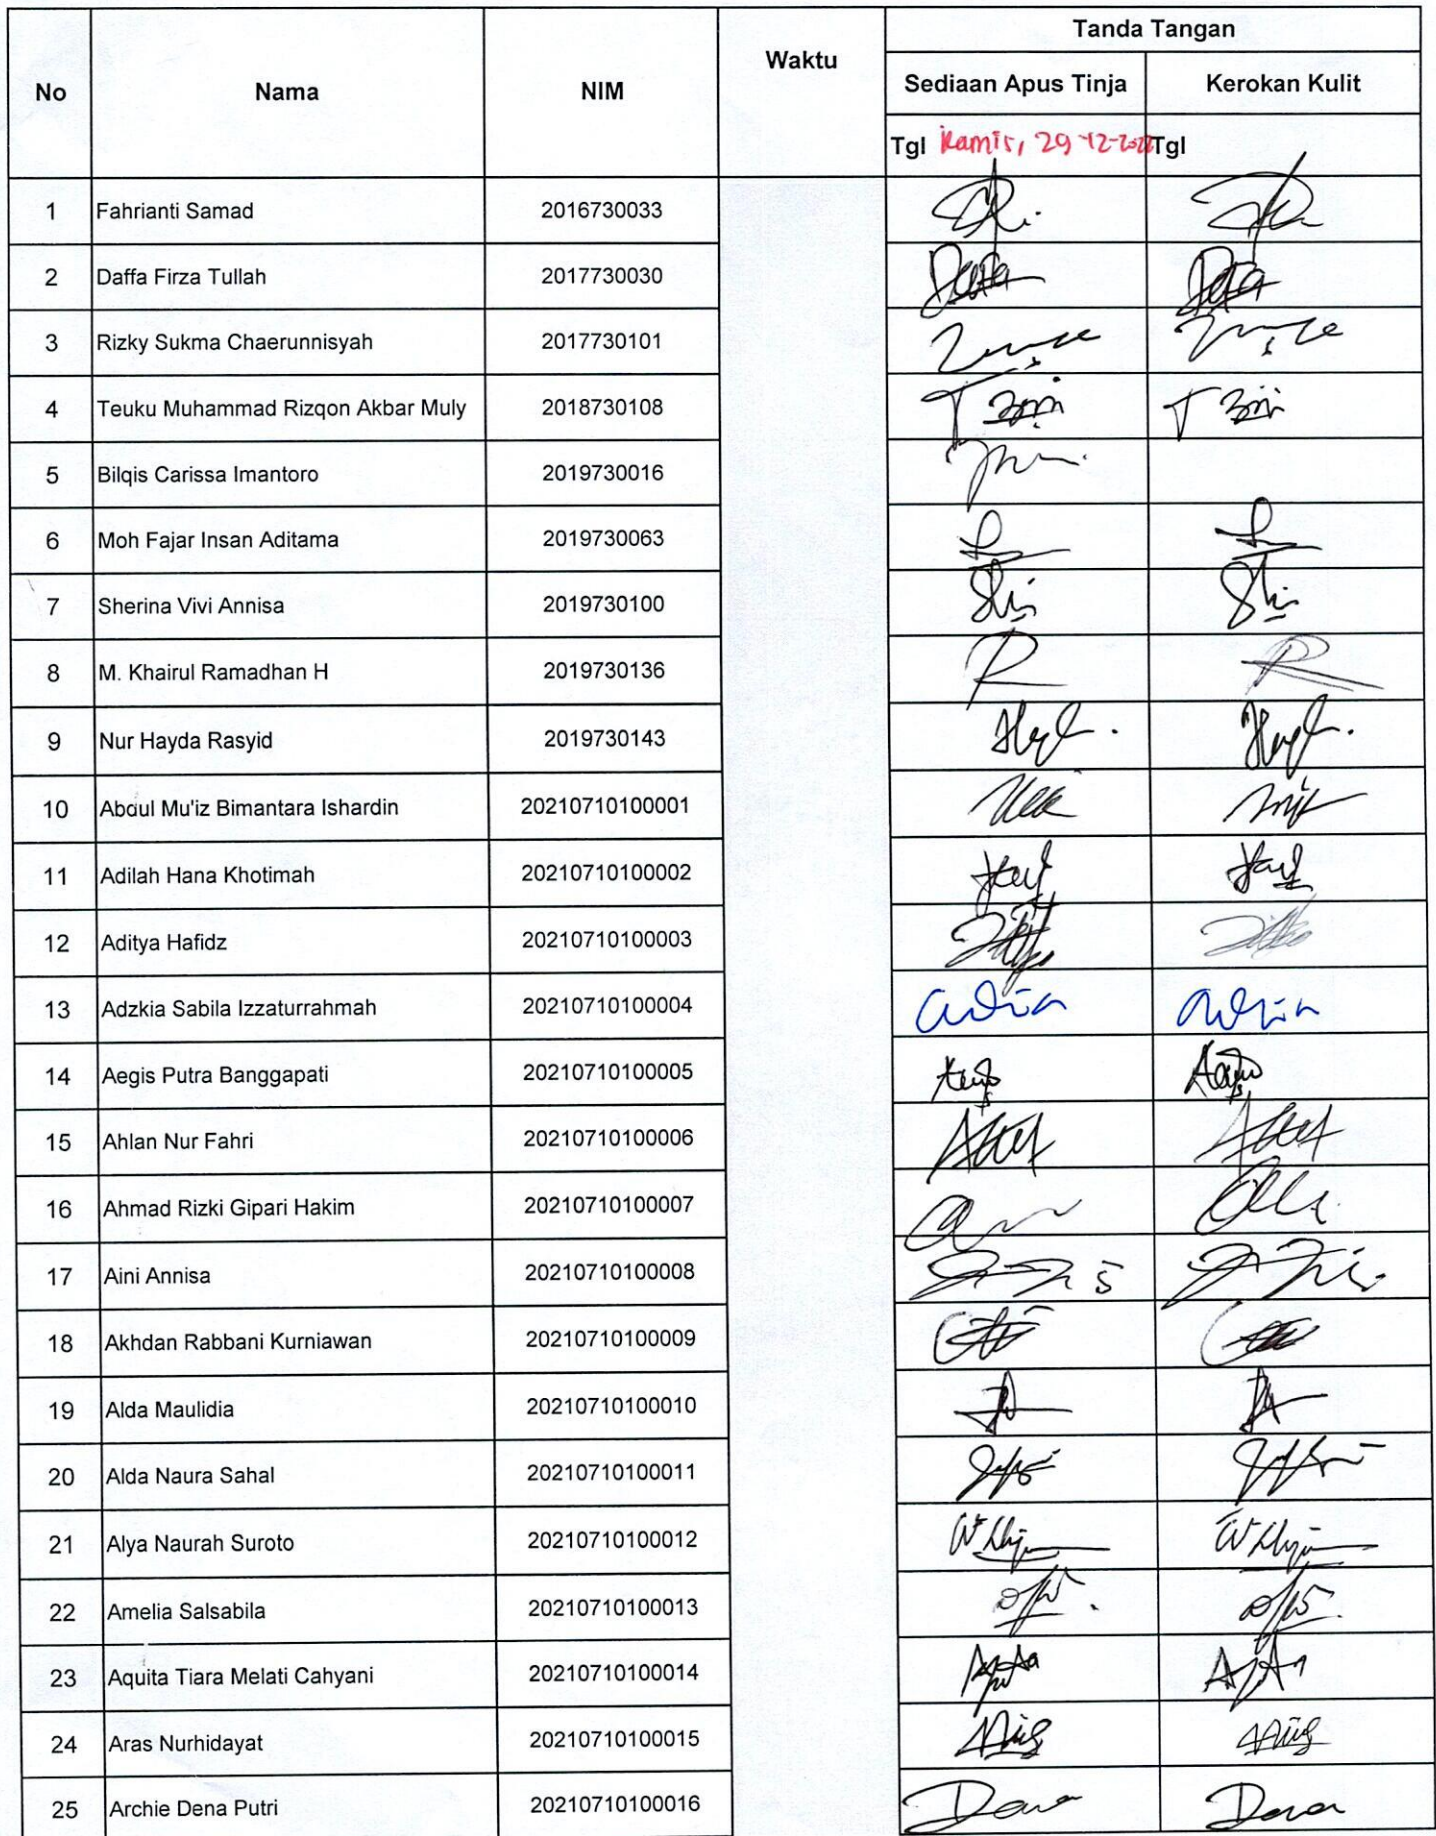 No Nama NIM Waktu Tanda Tangan
Sediaan Apus Tinja Kerokan Kulit
Tgl Kamis, 29-12-2022 Tgl
1 Fahrianti Samad 2016730033
2 Daffa Firza Tullah 2017730030
3 Rizky Sukma Chaerunnisyah 2017730101
4 Teuku Muhammad Rizqon Akbar Muly 2018730108
5 Bilqis Carissa Imantoro 2019730016
6 Moh Fajar Insan Aditama 2019730063
7 Sherina Vivi Annisa 2019730100
8 M. Khairul Ramadhan H 2019730136
9 Nur Hayda Rasyid 2019730143
10 Abdul Mu'iz Bimantara Ishardin 20210710100001
11 Adilah Hana Khotimah 20210710100002
12 Aditya Hafidz 20210710100003
13 Adzkia Sabila Izzaturrahmah 20210710100004
14 Aegis Putra Banggapati 20210710100005
15 Ahlan Nur Fahri 20210710100006
16 Ahmad Rizki Gipari Hakim 20210710100007
17 Aini Annisa 20210710100008
18 Akhdan Rabbani Kurniawan 20210710100009
19 Alda Maulidia 20210710100010
20 Alda Naura Sahal 20210710100011
21 Alya Naurah Suroto 20210710100012
22 Amelia Salsabila 20210710100013
23 Aquita Tiara Melati Cahyani 20210710100014
24 Aras Nurhidayat 20210710100015
25 Archie Dena Putri 20210710100016